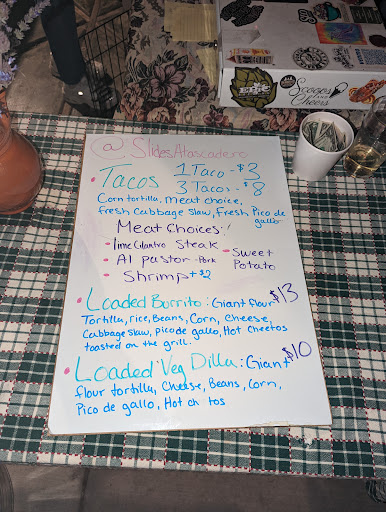 @SlidesAtascadero
• Tacos 1 Taco - $3
3 Tacos - $8
Corn tortilla, meat choice,
fresh Cabbage Slaw, Fresh Pico de
gallo
Meat Choices:
• lime Cilantro Steak
• Al pastor - Pork
• Sweet
Potato
• Shrimp + $2
• Loaded Burrito: Giant flour $13
Tortilla, rice, Beans, Corn, Cheese,
Cabbage slaw, pico de gallo, Hot Cheetos
toasted on the grill.
• Loaded Veg Dilla: Giant $10
flour tortilla, Cheese, Beans, Corn,
Pico de gallo, Hot ch tos
Scoops
Cheers